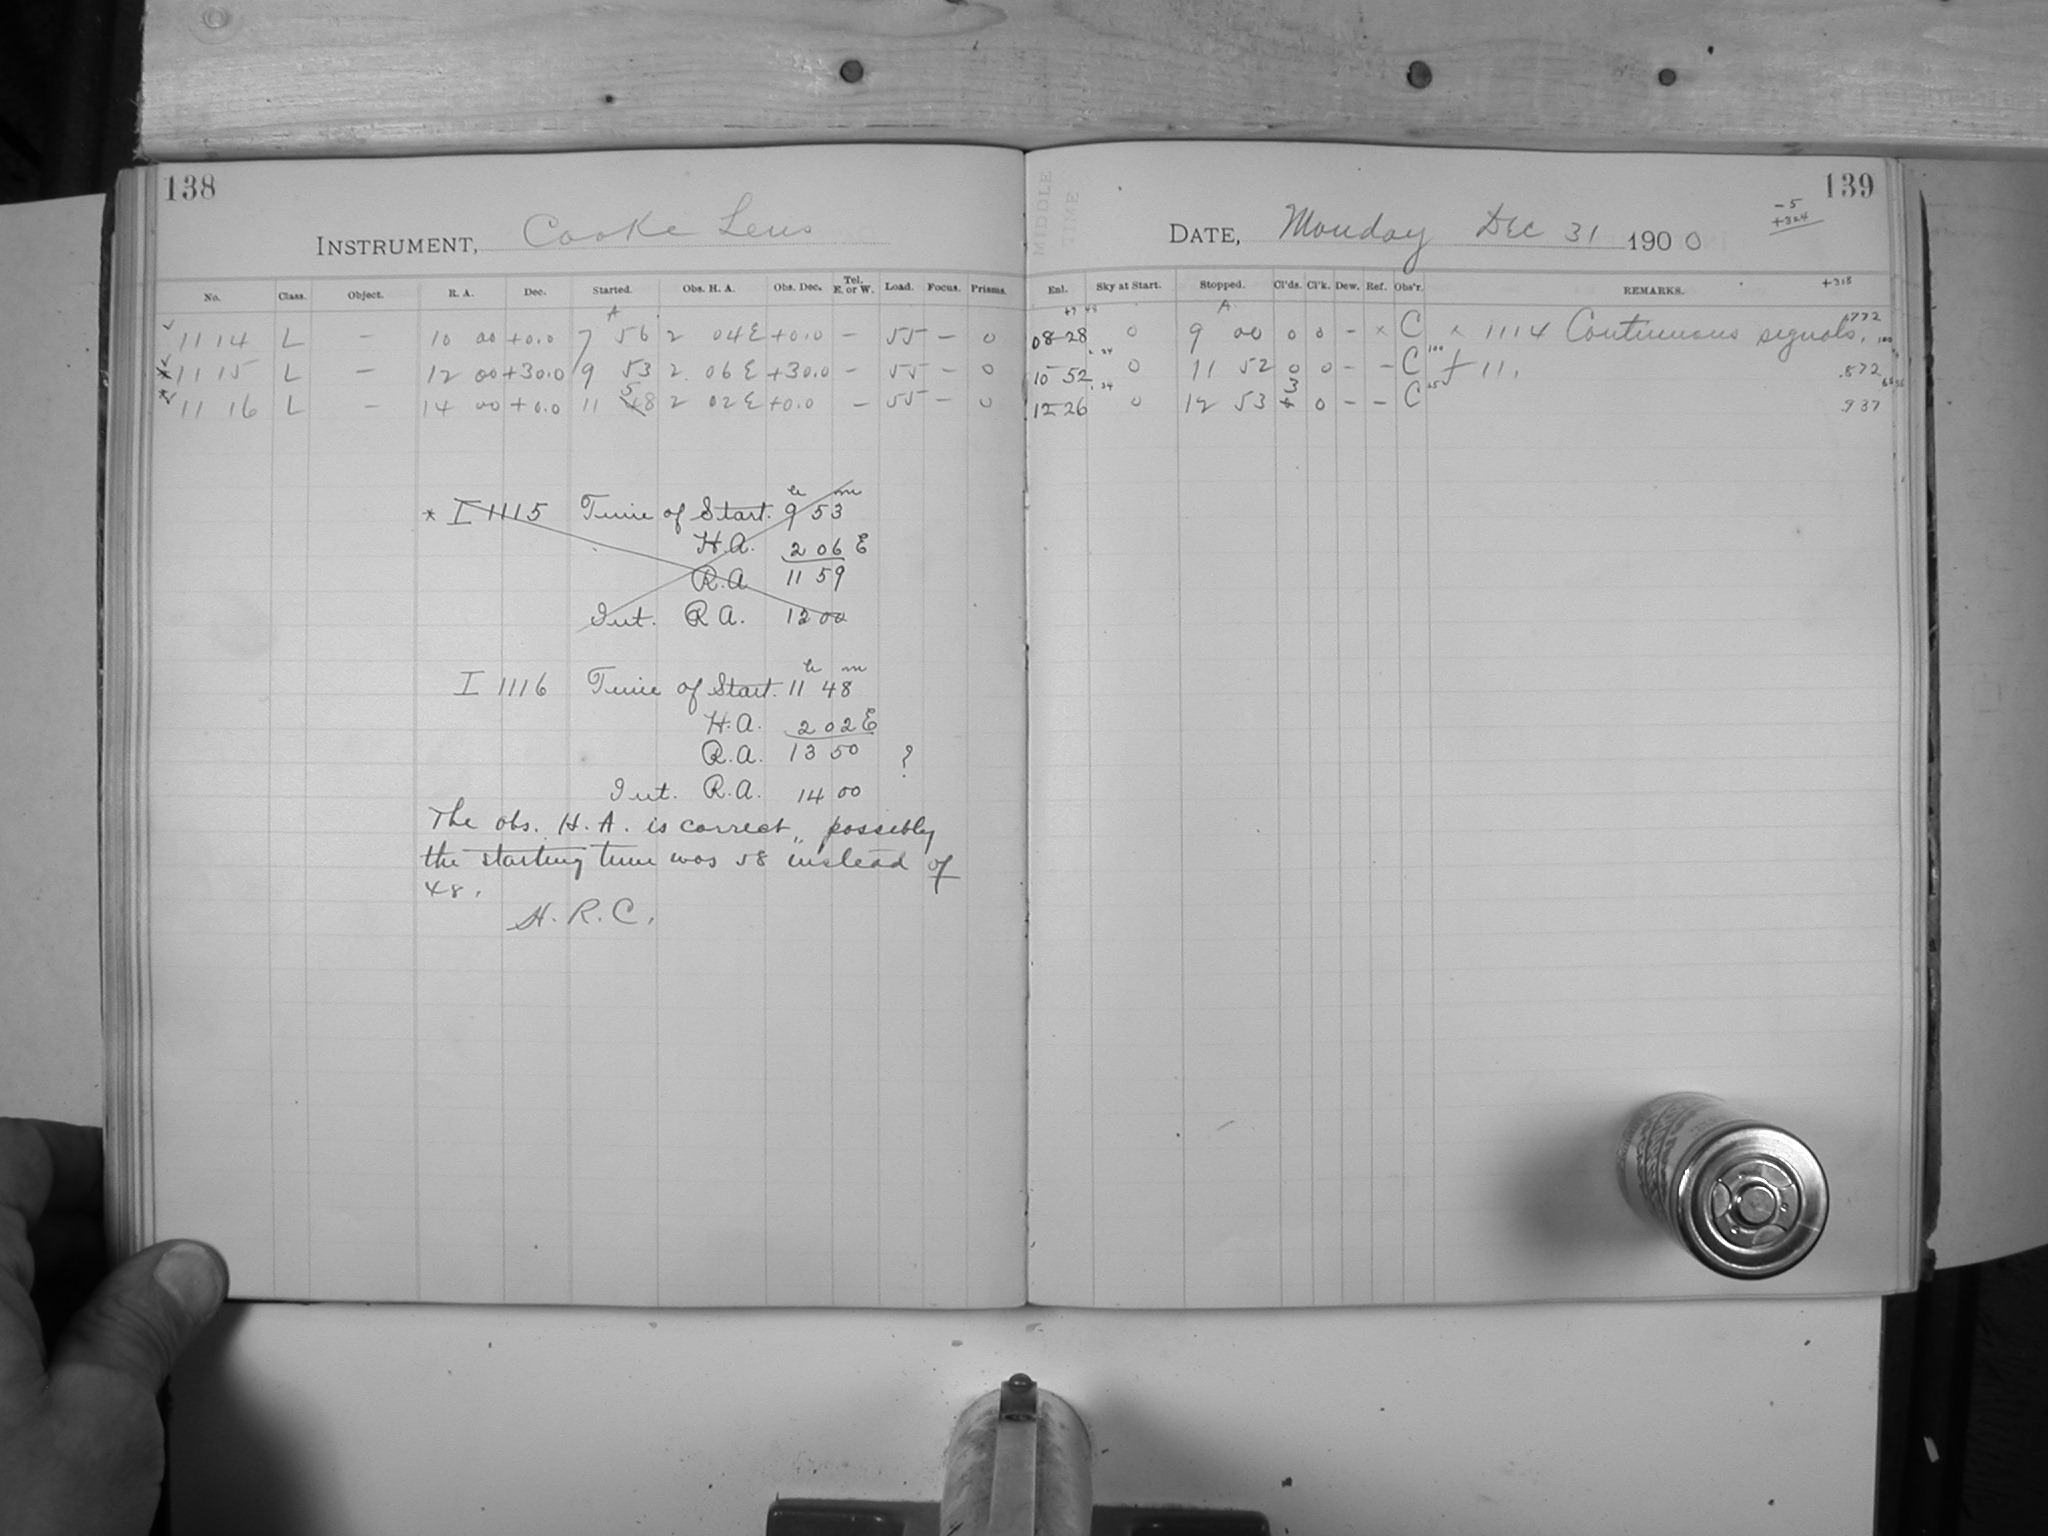 138
INSTRUMENT, Cooke Lens
No. Class. Object. R. A. Dec. Started. Obs. H. A. Obs. Dec. Tel. E. or W. Load. Focus. Prisms.
A
11 14 L – 10 00 +0.0 7 56 2 04 E +0.0 – 55 – 0
11 15 L – 12 00 +30.0 9 53 2 06 E +30.0 – 55 – 0
5
11 16 L – 14 00 +0.0 11 48 2 02 E +0.0 – 55 – 0
* I 1115 Time of Start. 9h 53m
H.A. 2 06 E
R.A 11 59
Int. R A. 12 00
I 1116 Time of Start. 11h 48m
H.A. 2 02 E
R.A. 13 50 ?
Int. R.A. 14 00
The obs. H. A. is correct, possibly
the starting time was 58 instead of
48.
H. R. C.
139
MIDDLE TIME
-5
+324
DATE, Monday Dec 31 1900
Enl. Sky at Start. Stopped. Cl'ds. Cl'k. Dew. Ref. Obs'r. REMARKS. +318
A
08 28 0 9 00 0 0 – x C x 1114 Continuous signals. .772
10 52 0 11 52 0 0 – – C 100 + 11. .872
12 26 0 12 53 +3 0 – – C .937